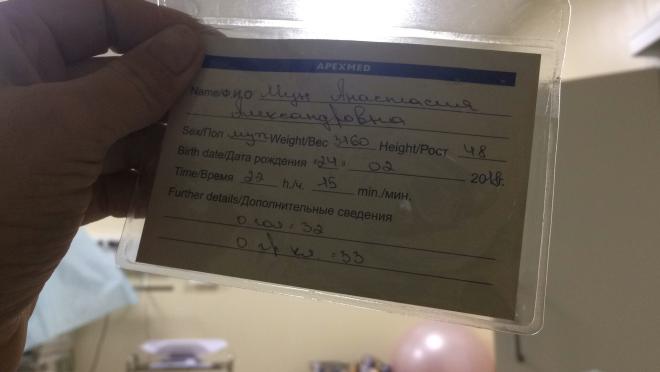 APEXMED
Name/ФИО Мун Анастасия
Александровна
Sex/Пол муж Weight/Вес 3160 Height/Рост 48
Birth date/Дата рождения «24» 02 2018г.
Time/Время 22 h./ч. 15 min./мин.
Further details/Дополнительные сведения
О гол = 32
О гр кл = 33